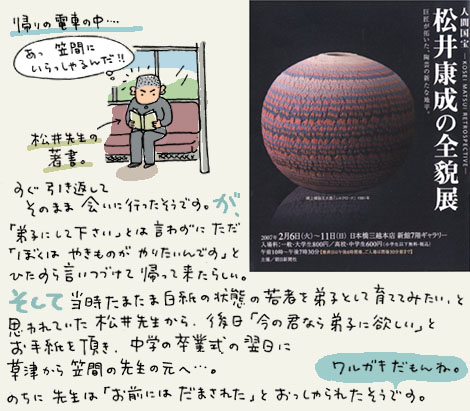 帰りの電車の中…
あっ 笠間に
いらっしゃるんだ!!
松井先生の
著書。
人間国宝 —KOSEI MATSUI RETROSPECTIVE—
松井康成の全貌展
巨匠が拓いた、陶芸の新たな地平。
2007年2月6日(火)〜11日(日) 日本橋三越本店 新館7階ギャラリー
入場料:一般・大学生800円/高校・中学生600円(小学生以下無料・税込)
午前10時〜午後7時30分
主催/朝日新聞社
すぐ 引き返して
そのまま 会いに行ったそうです。が、
「弟子にして下さい」とは言わずに ただ
「ぼくは やきものが やりたいんです」と
ひたすら言いつづけて 帰って来たらしい。
そして 当時たまたま白紙の状態の若者を弟子として育ててみたい、と
思われていた 松井先生から、後日「今の君なら弟子に欲しい」と
お手紙を頂き、中学の卒業式の翌日に
草津から笠間の先生の元へ…。
ワルガキだもんね。
のちに 先生は「お前には だまされた」と おっしゃられたそうです。